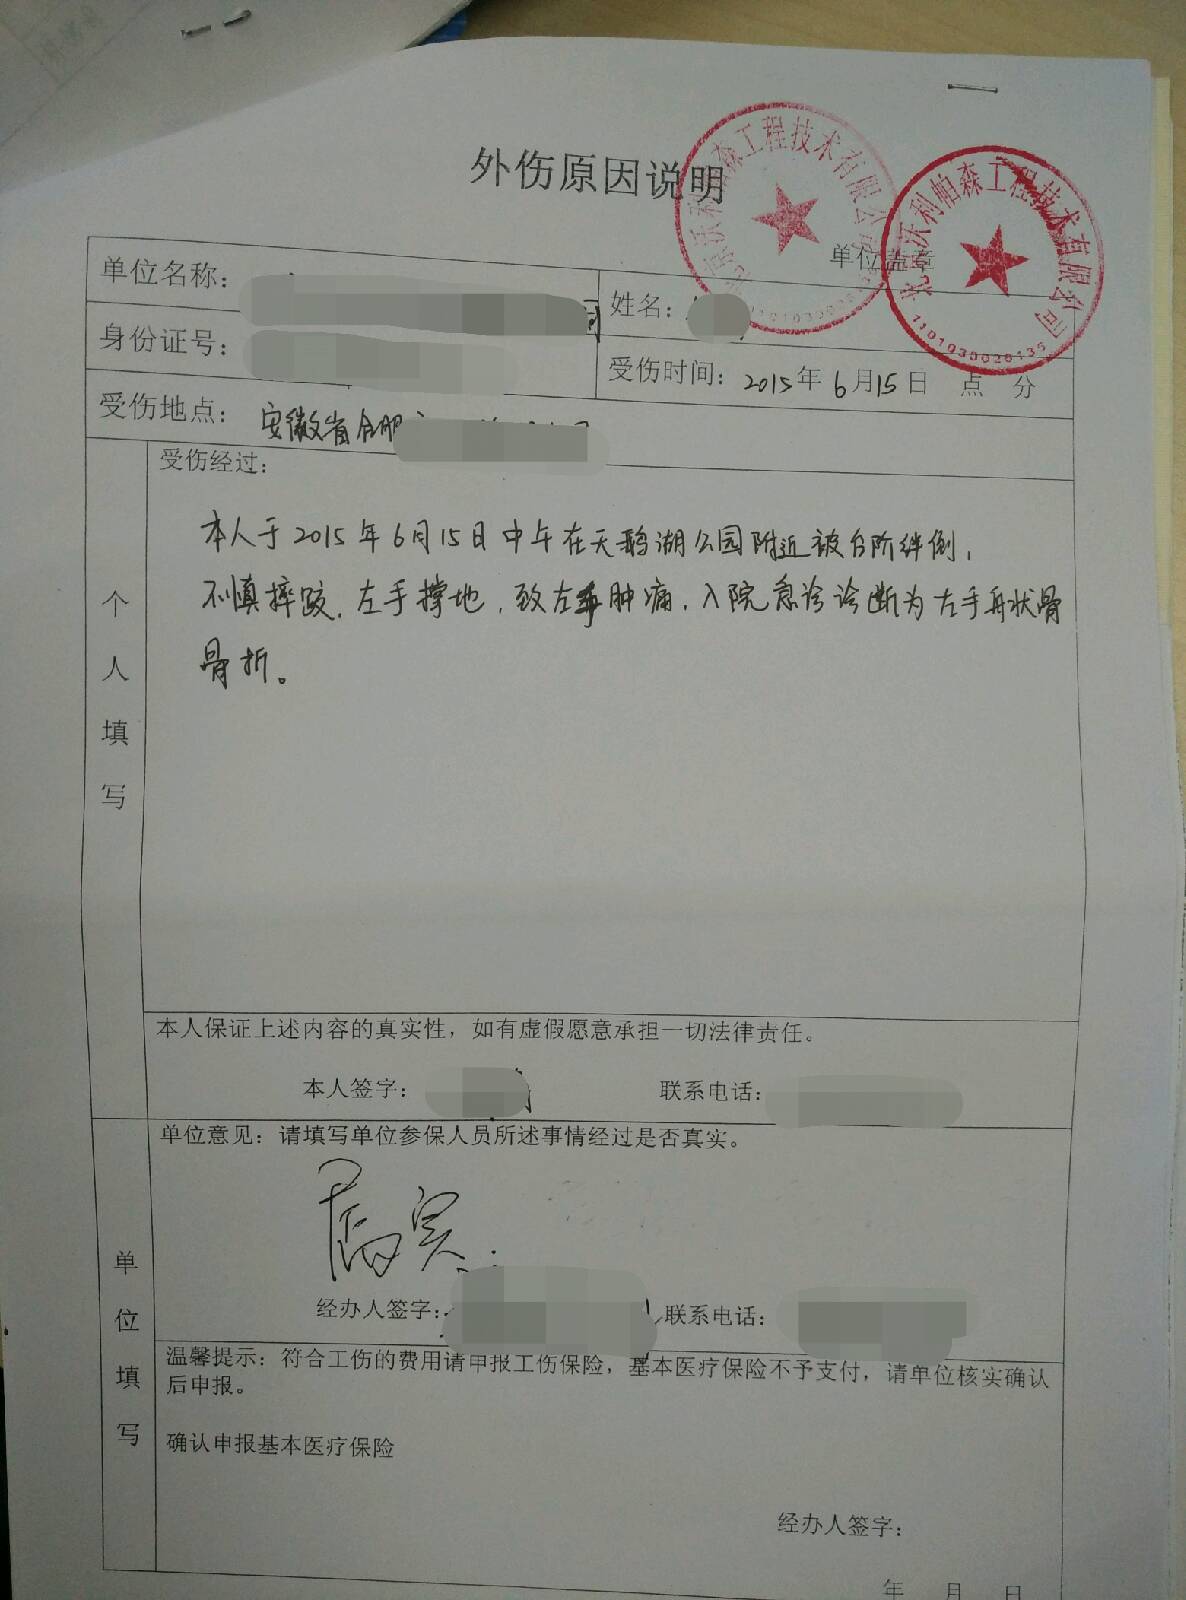 外伤原因说明
单位盖章
北京沃利帕森工程技术有限公司
北京沃利帕森工程技术有限公司
1101030020135
单位名称：
姓名：
身份证号：
受伤时间：2015年6月15日 点 分
受伤地点：安徽省合肥
个人填写
受伤经过：
本人于2015年6月15日中午在天鹅湖公园附近被台阶绊倒，
不慎摔跤，左手撑地，致左手肿痛，入院急诊诊断为左手舟状骨
骨折。
本人保证上述内容的真实性，如有虚假愿意承担一切法律责任。
本人签字： 联系电话：
单位填写
单位意见：请填写单位参保人员所述事情经过是否真实。
属实
经办人签字： 联系电话：
温馨提示：符合工伤的费用请申报工伤保险，基本医疗保险不予支付，请单位核实确认
后申报。
确认申报基本医疗保险
经办人签字：
年 月 日